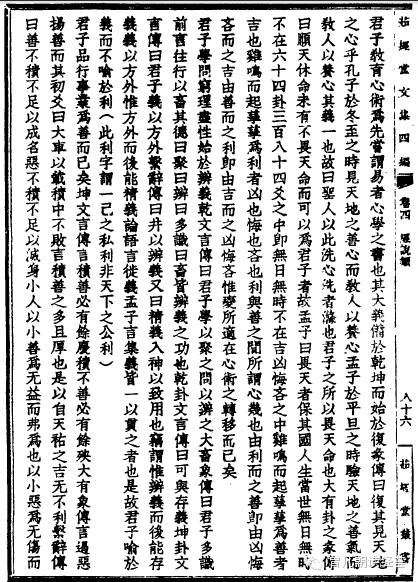 茹經堂文集四編 卷四 八十六 茹經堂
君子教育心術為先嘗謂易者心學之書也其大義備於乾坤而始於復彖傳曰復其見天地
之心乎孔子於冬至之時見天地之善心而教人以養心孟子於平旦之時驗天地之善氣而
教人以養心其義一也故曰聖人以此洗心洗者滌也君子之所以畏天命也大有卦之象傳
曰順天休命未有不畏天命而可以為君子者故孟子曰畏天者保其國人生當世無日無時
不在六十四卦三百八十四爻之中即無日無時不在吉凶悔吝之中雞鳴而起孳孳為善者
吉也雞鳴而起孳孳為利者凶也悔也吝也利與善之間所謂心幾也由利而之善即由凶悔
吝而之吉由善而之利即由吉而之凶悔吝惟變所適在心術之轉移而已矣
君子學問窮理盡性始於辨義乾文言傳曰君子學以聚之問以辨之大畜象傳曰君子多識
前言往行以畜其德曰聚曰辨曰多識曰畜皆辨義之功也乾卦文言傳曰可與存義坤卦文
言傳曰君子義以方外繫辭傳曰井以辨義又曰精義入神以致用也竊謂惟辨義而後能存
義義以方外惟方外而後能精義論語言徙義孟子言集義皆一以貫之者也是故君子喻於
義而不喻於利(此利字謂一己之私利非天下之公利)
君子品行事業為善而已矣坤文言傳言積善必有餘慶積不善必有餘殃大有象傳言遏惡
揚善而其初爻曰大車以載積中不敗言積善之多且厚也是以自天祐之吉无不利繫辭傳
曰善不積不足以成名惡不積不足以滅身小人以小善為无益而弗為也以小惡為无傷而